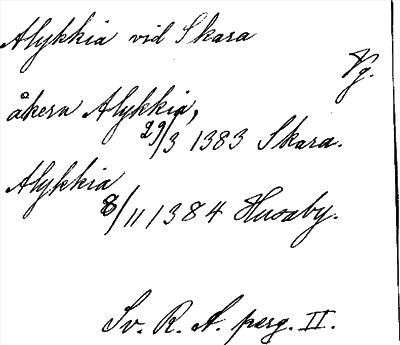 Alykkia vid Skara
Vg.
åkern Alykkia,
29/3 1383 Skara.
Alykkia
8/11 1384 Husaby.
Sv. R. A. perg. II.